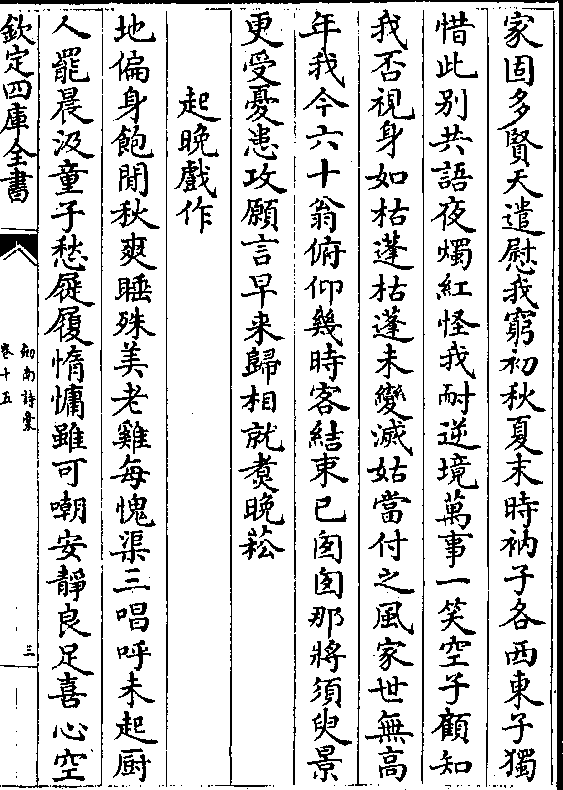 家固多賢天遣慰我窮初秋夏末時衲子各西東子獨
惜此别共語夜燭紅怪我耐逆境萬事一笑空子顧知
我否視身如枯蓬枯蓬未變滅姑當付之風家世無高
年我今六十翁俯仰幾時客結束已囱囱那將須臾景
更受憂患攻願言早來歸相就煑晚菘
起晚戲作
地偏身飽閒秋爽睡殊美老雞每愧渠三唱呼未起厨
人罷晨汲童子愁屣履惰慵雖可嘲安靜良足喜心空
欽定四庫全書
劒南詩稾
卷十五
三